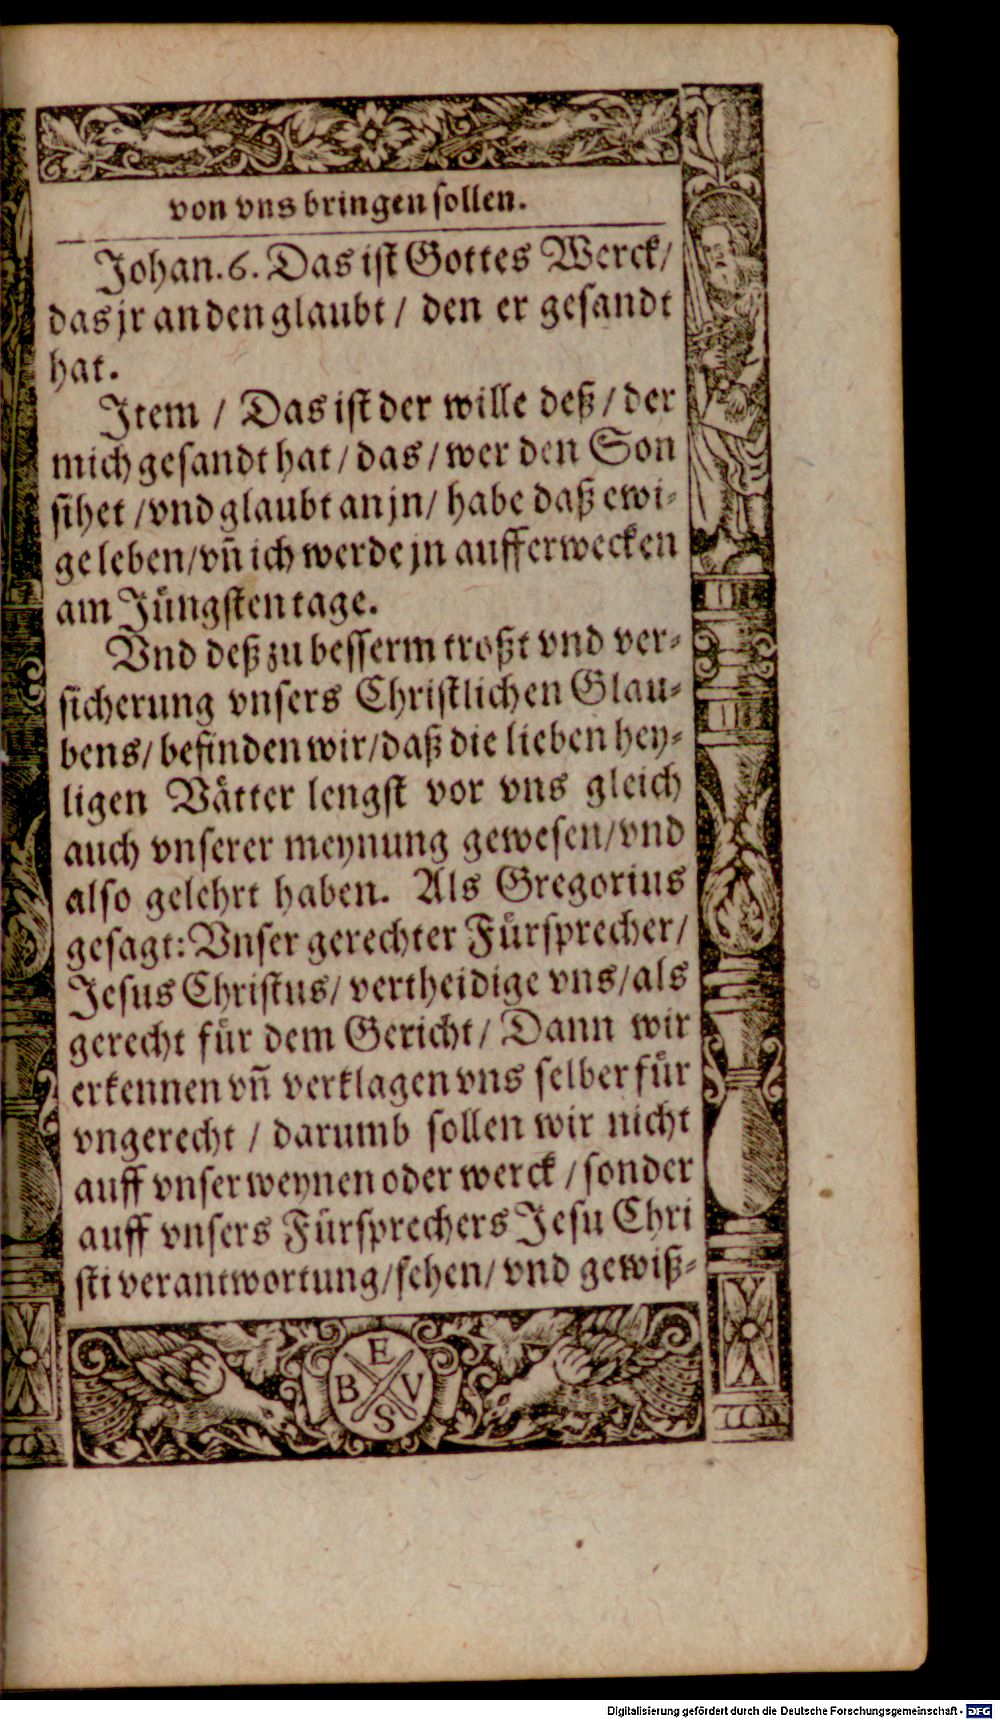 von vns bringen sollen.
Johan. 6. Das ist Gottes Werck/
das jr an den glaubt / den er gesandt
hat.
Item / Das ist der wille deß / der
mich gesandt hat / das / wer den Son
sihet / vnd glaubt an jn / habe daß ewi-
ge leben / vn̄ ich werde jn aufferwecken
am Jüngsten tage.
Vnd deß zu besserm troßt vnd ver-
sicherung vnsers Christlichen Glau-
bens / befinden wir / daß die lieben hey-
ligen Vätter lengst vor vns gleich
auch vnserer meynung gewesen / vnd
also gelehrt haben. Als Gregorius
gesagt: Vnser gerechter Fürsprecher /
Jesus Christus / vertheidige vns / als
gerecht für dem Gericht / Dann wir
erkennen vn̄ verklagen vns selber für
vngerecht / darumb sollen wir nicht
auff vnser weynen oder werck / sonder
auff vnsers Fürsprechers Jesu Chri
sti verantwortung / sehen / vnd gewiß-
E
B V
S
Digitalisierung gefördert durch die Deutsche Forschungsgemeinschaft - DFG